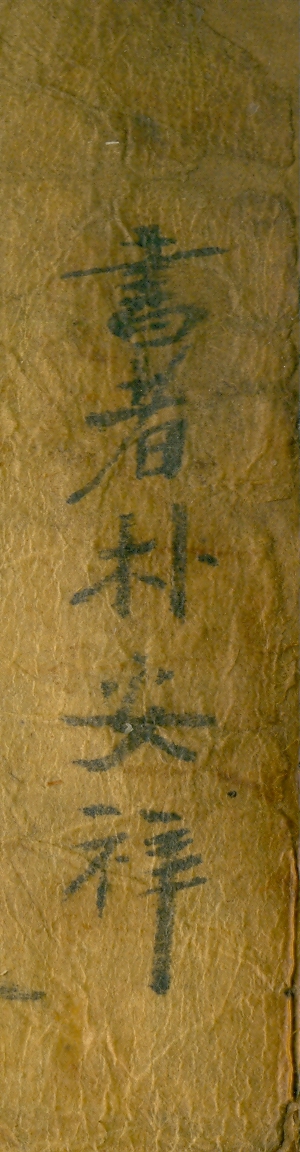 書者朴祥